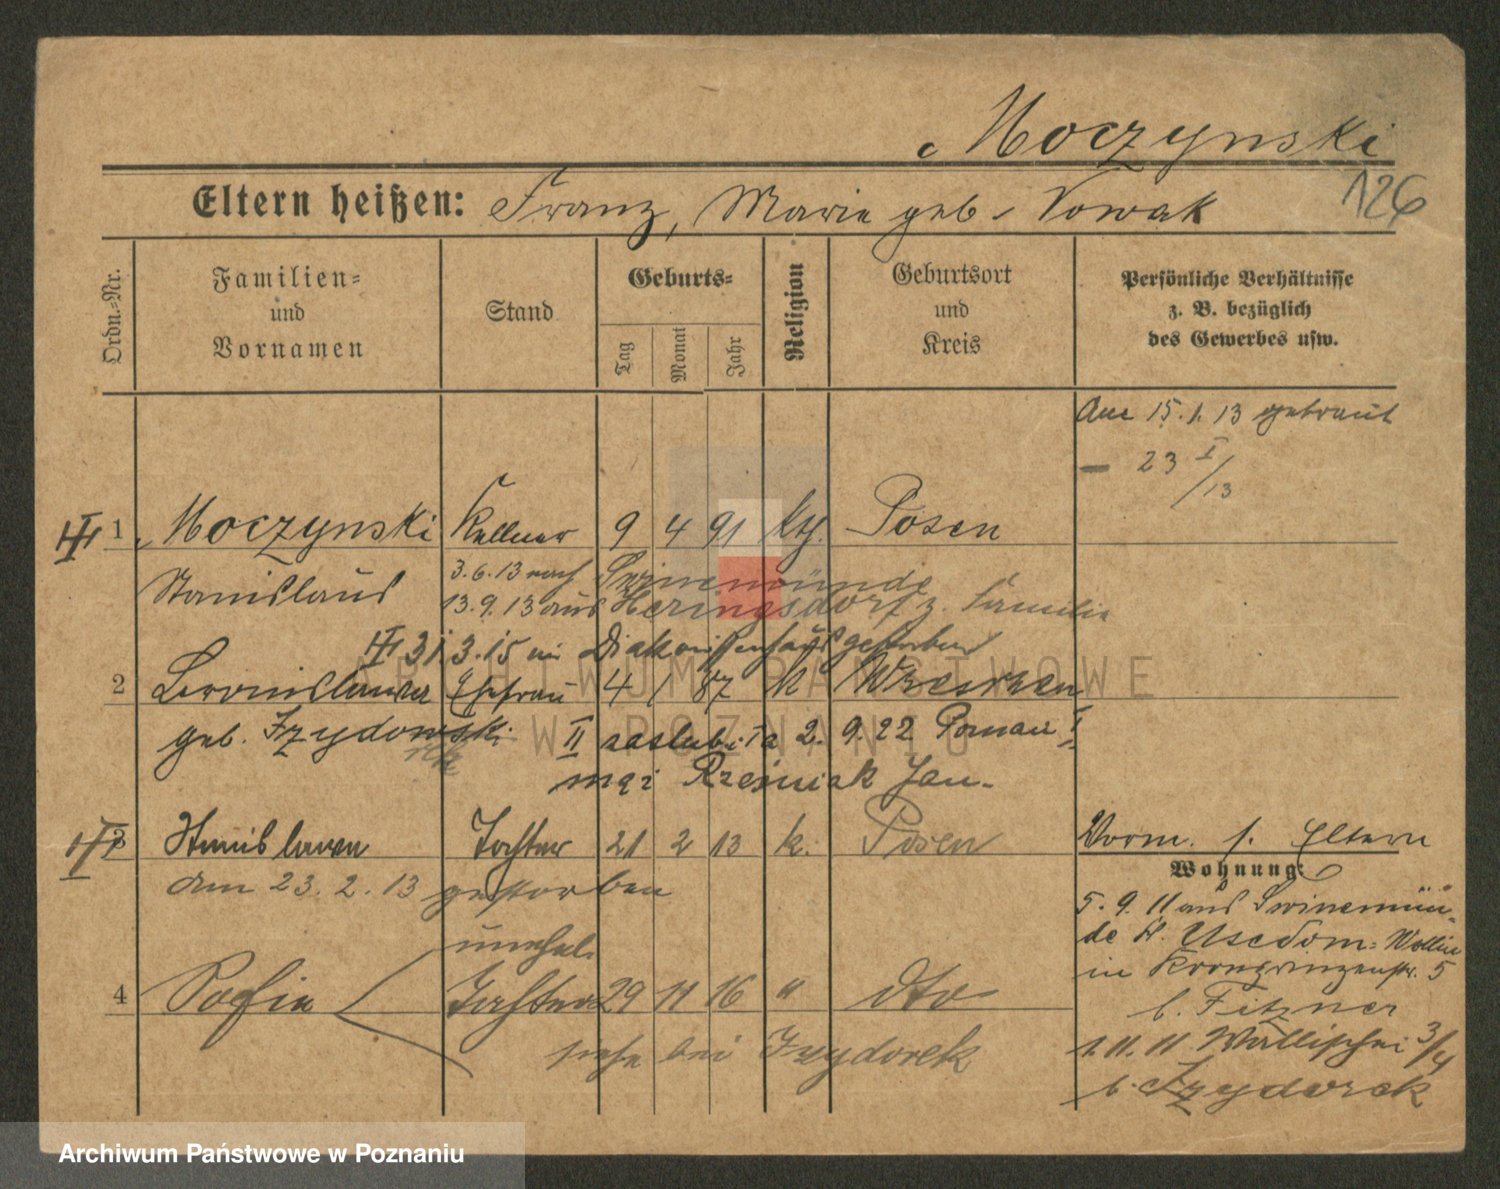 Moczynski
126
Eltern heißen: Franz, Marie geb. Nowak
Ordn.=Nr.
Familien=
und
Vornamen
Stand
Geburts=
Tag
Monat
Jahr
Religion
Geburtsort
und
Kreis
Persönliche Verhältnisse
z. B. bezüglich
des Gewerbes usw.
Am 15.1.13 getraut
— 23 I/13
1 Moczynski Kellner 9 4 91 kth. Posen
Stanislaus
3.6.13 nach Swinemünde
13.9.13 aus Heringsdorf z. Familie
31 3.15 im Diakonissenhaus gestorben
2 Bronislawa Ehefrau 4 1 87 k Wreschen
geb. Izydorski
II 2. 9.22 Poznań I
mąż Rzeźniak Jan.
3 Stanislawa Tochter 21 2 13 k. Posen
am 23.2.13 gestorben
unehel.
4 Sofie Tochter 29 11 16 " dto
siehe bei Izydorek
Vorm. s. Eltern
Wohnung:
5.9.11 aus Swinemün-
de K. Usedom=Wollin
in Kronprinzenstr. 5
b. Fitzner
1.11.11 Wallischei 3/4
b. Izydorek
ARCHIWUM PAŃSTWOWE
W POZNANIU
Archiwum Państwowe w Poznaniu